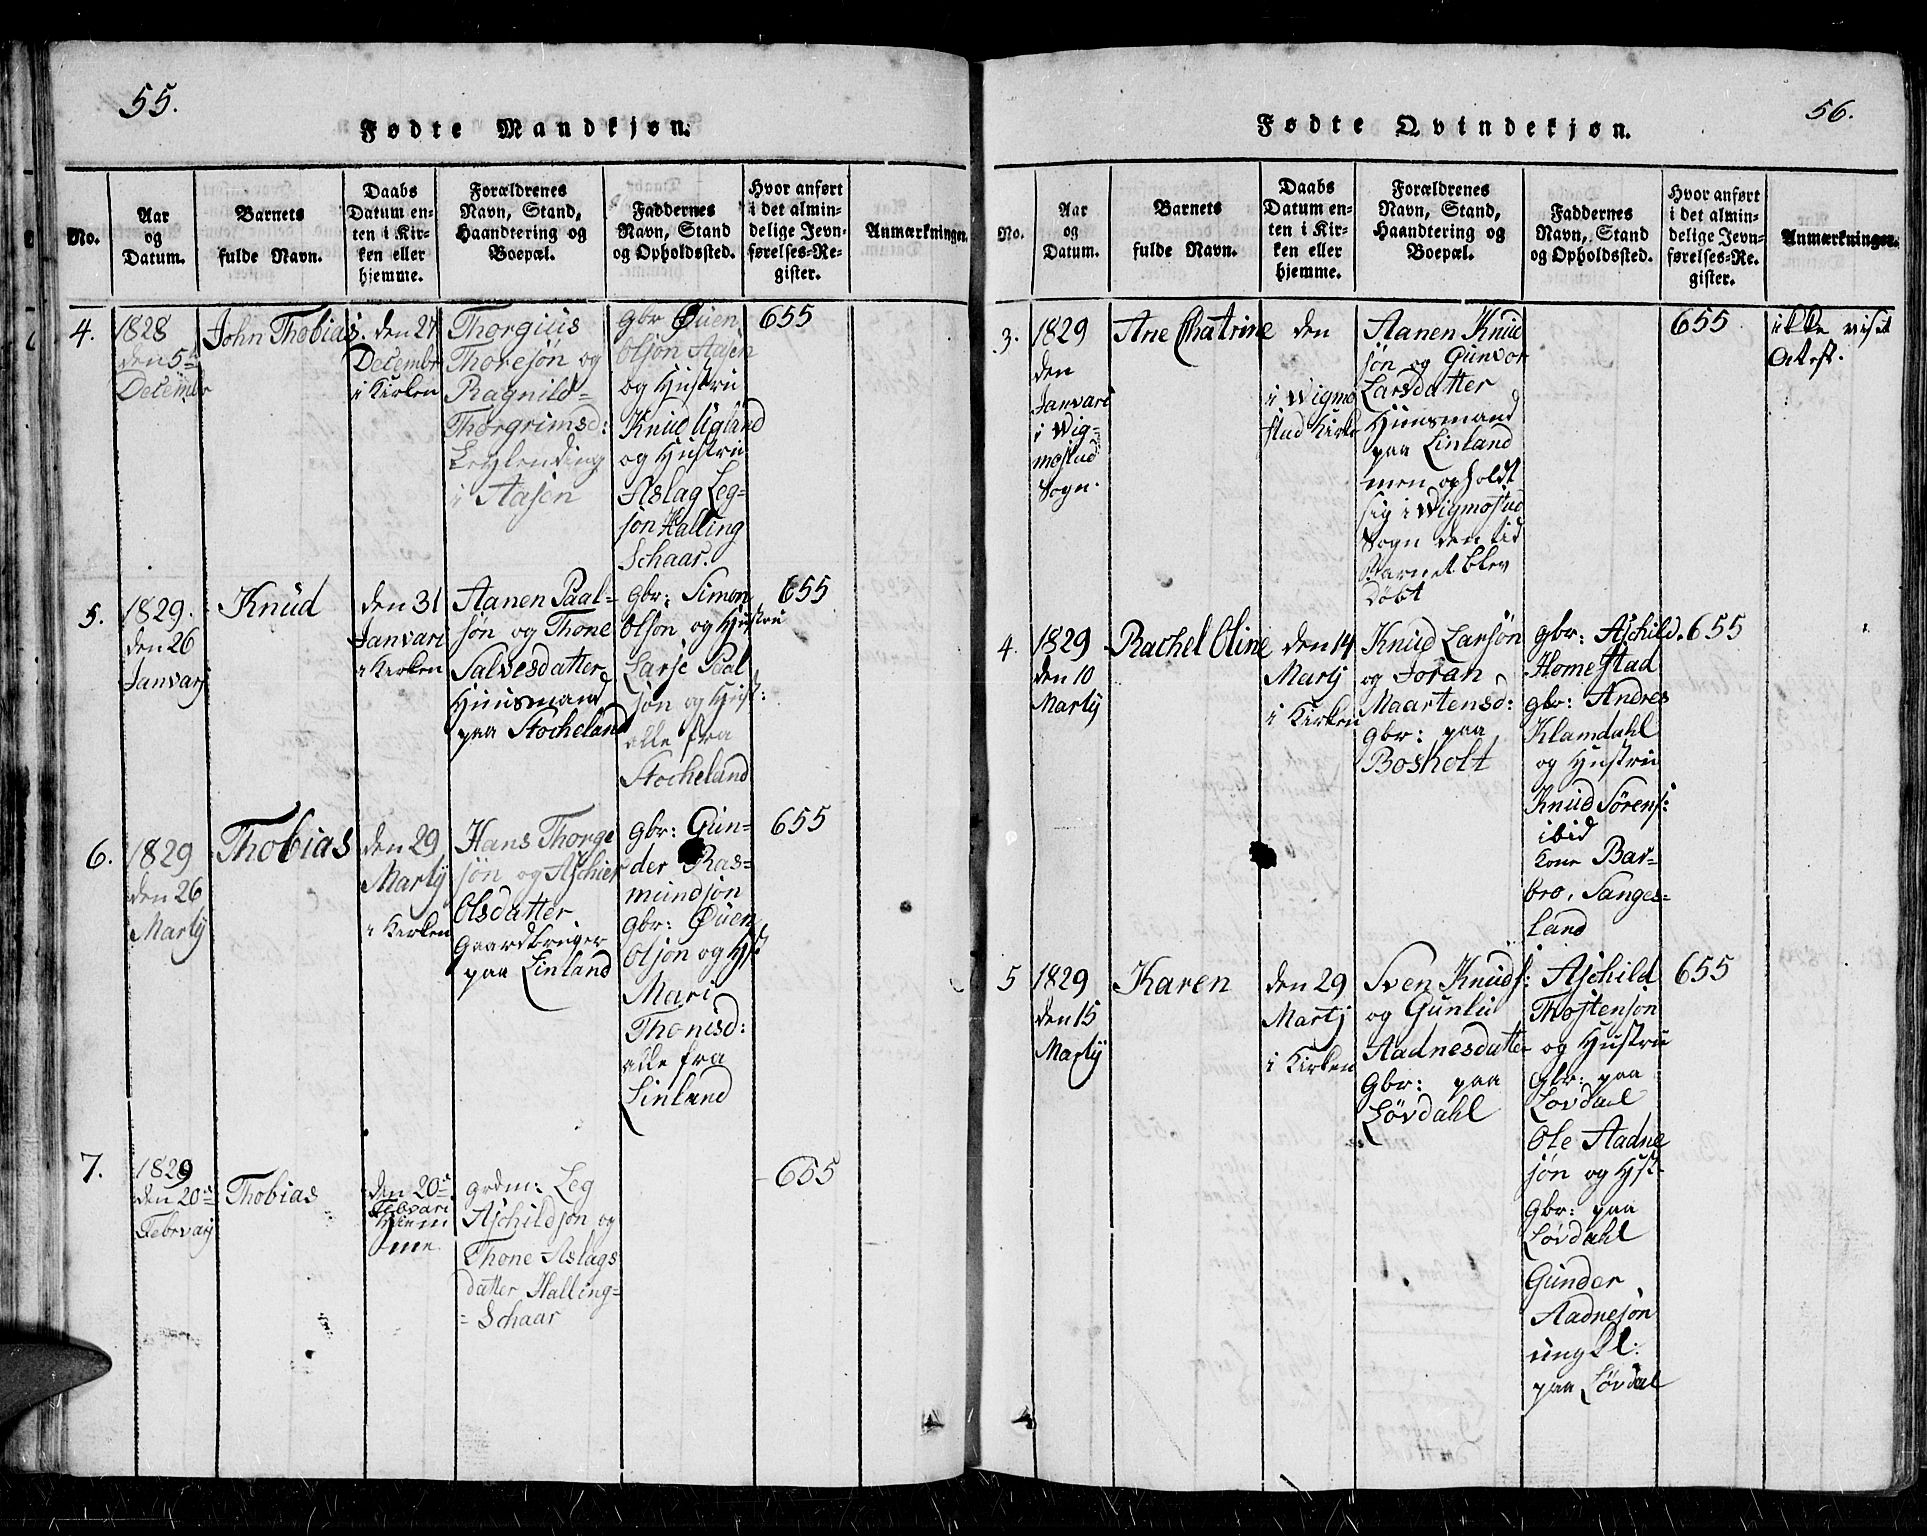 55.
Fødte Mandkjøn.
No.
Aar
og
Datum.
Barnets
fulde Navn.
Daabs
Datum en-
ten i Kir-
ken eller
hjemme.
Forældrenes
Navn, Stand,
Haandtering og
Boepæl.
Faddernes
Navn, Stand
og Opholdssted.
Hvor anført
i det almin-
delige Jevn-
førelses-Re-
gister.
Anmærkninger.
4.
1828
den 5te
December
John Thobias
den 27
Decembr
i Kirken
Thorgius
Thoresøn og
Ragnild
Thorgrimsd:
Leylending
i Aasen
gbr Øuen
Olsøn Aasen
og Hustru
Knud Ugland
og Hustru
Aslag Leg-
søn Halling
Schaar.
655
5.
1829.
den 26
Januarj
Knud
den 31
Janvari
i Kirken
Aanen Paal-
søn og Thone
Salvesdatter
Huusmand
paa Stocheland
gbr: Simon
Olson og Hustru
Larse Paal
søn og Hust:
alle fra
Stocheland
655
6.
1829
den 26
Martÿ
Thobias
den 29
Martÿ
i Kirken
Hans Thorge
søn og Aschier
Olsdatter
Gaardbruger
paa Linland
gbr: Gun-
der Ras-
mundsøn
gbr: Øuen
Olsøn og Hst
Mari
Thonisd:
alle fra
Linland
655
7.
1829
den 20de
Februarj
Thobias
den 20de
Februari
hiem
me
grdm: Leg
Aschildsøn og
Thone Aslags
datter Halling-
Schaar
655
56.
Fødte Qvindekjøn.
No.
Aar
og
Datum.
Barnets
fulde Navn.
Daabs
Datum en-
ten i Kir-
ken eller
hjemme.
Forældrenes
Navn, Stand,
Haandtering og
Boepæl.
Faddernes
Navn, Stand
og Opholdssted.
Hvor anført
i det almin-
delige Jevn-
førelses-Re-
gister.
Anmærkninger.
3.
1829
den
Janvari
i Wig-
mostad
Sogn.
Ane Chatrine
den
i Wigmo
stad Kirke
Aanen Knud
søn og Gunvor
Larsdatter
Huusmand
paa Linland
men opholdt
sig i Wigmostad
Sogn den tid
Barnet blev
Døbt
655
ikke vist
Attest.
4.
1829
den 10
Martÿ
Rachel Oline
den 14
Martj
i Kirken
Knud Larsøn
og Joran
Maartensd:
gbr: paa
Bosholt
gbr: Aschild
Homestad
gbr: Andres
Klamdahl
og Hustru
Knud Sørens:
ibid
Kone Bar-
bro, Sanges-
land
655
5
1829
den 15
Martÿ
Karen
den 29
Martj
i Kirken
Sven Knuds:
og Gunlu
Aadnesdatter
Gbr: paa
Løvdahl
Aschild
Thostensøn
og Hustru
Gbr: paa
Lovdael
Ole Aadne
søn og Hst-
Gbr: paa
Løvdahl
Gunder
Aadnesøn
ungkl:
paa Løvdal
655